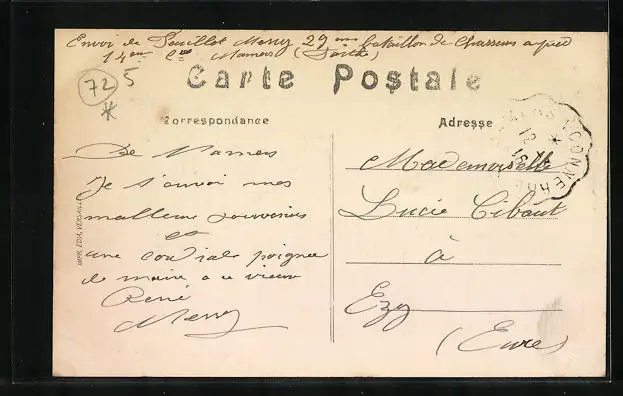 Envoi de Peuillot Merry 29 ème bataillon de Chasseurs à pied
14em Cie Mamers (Sarthe)
72 5
Carte Postale
Correspondance
Adresse
De Mamers
Je t'envoi mes
meilleurs souvenirs
et
une cordiale poignee
de main a ce vieux
René
Merry
Mademoiselle
Lucie Cibaut
à
Ezy
(Eure)
IMP. EDIA, VERSAILLES
CONNERRÉ
12